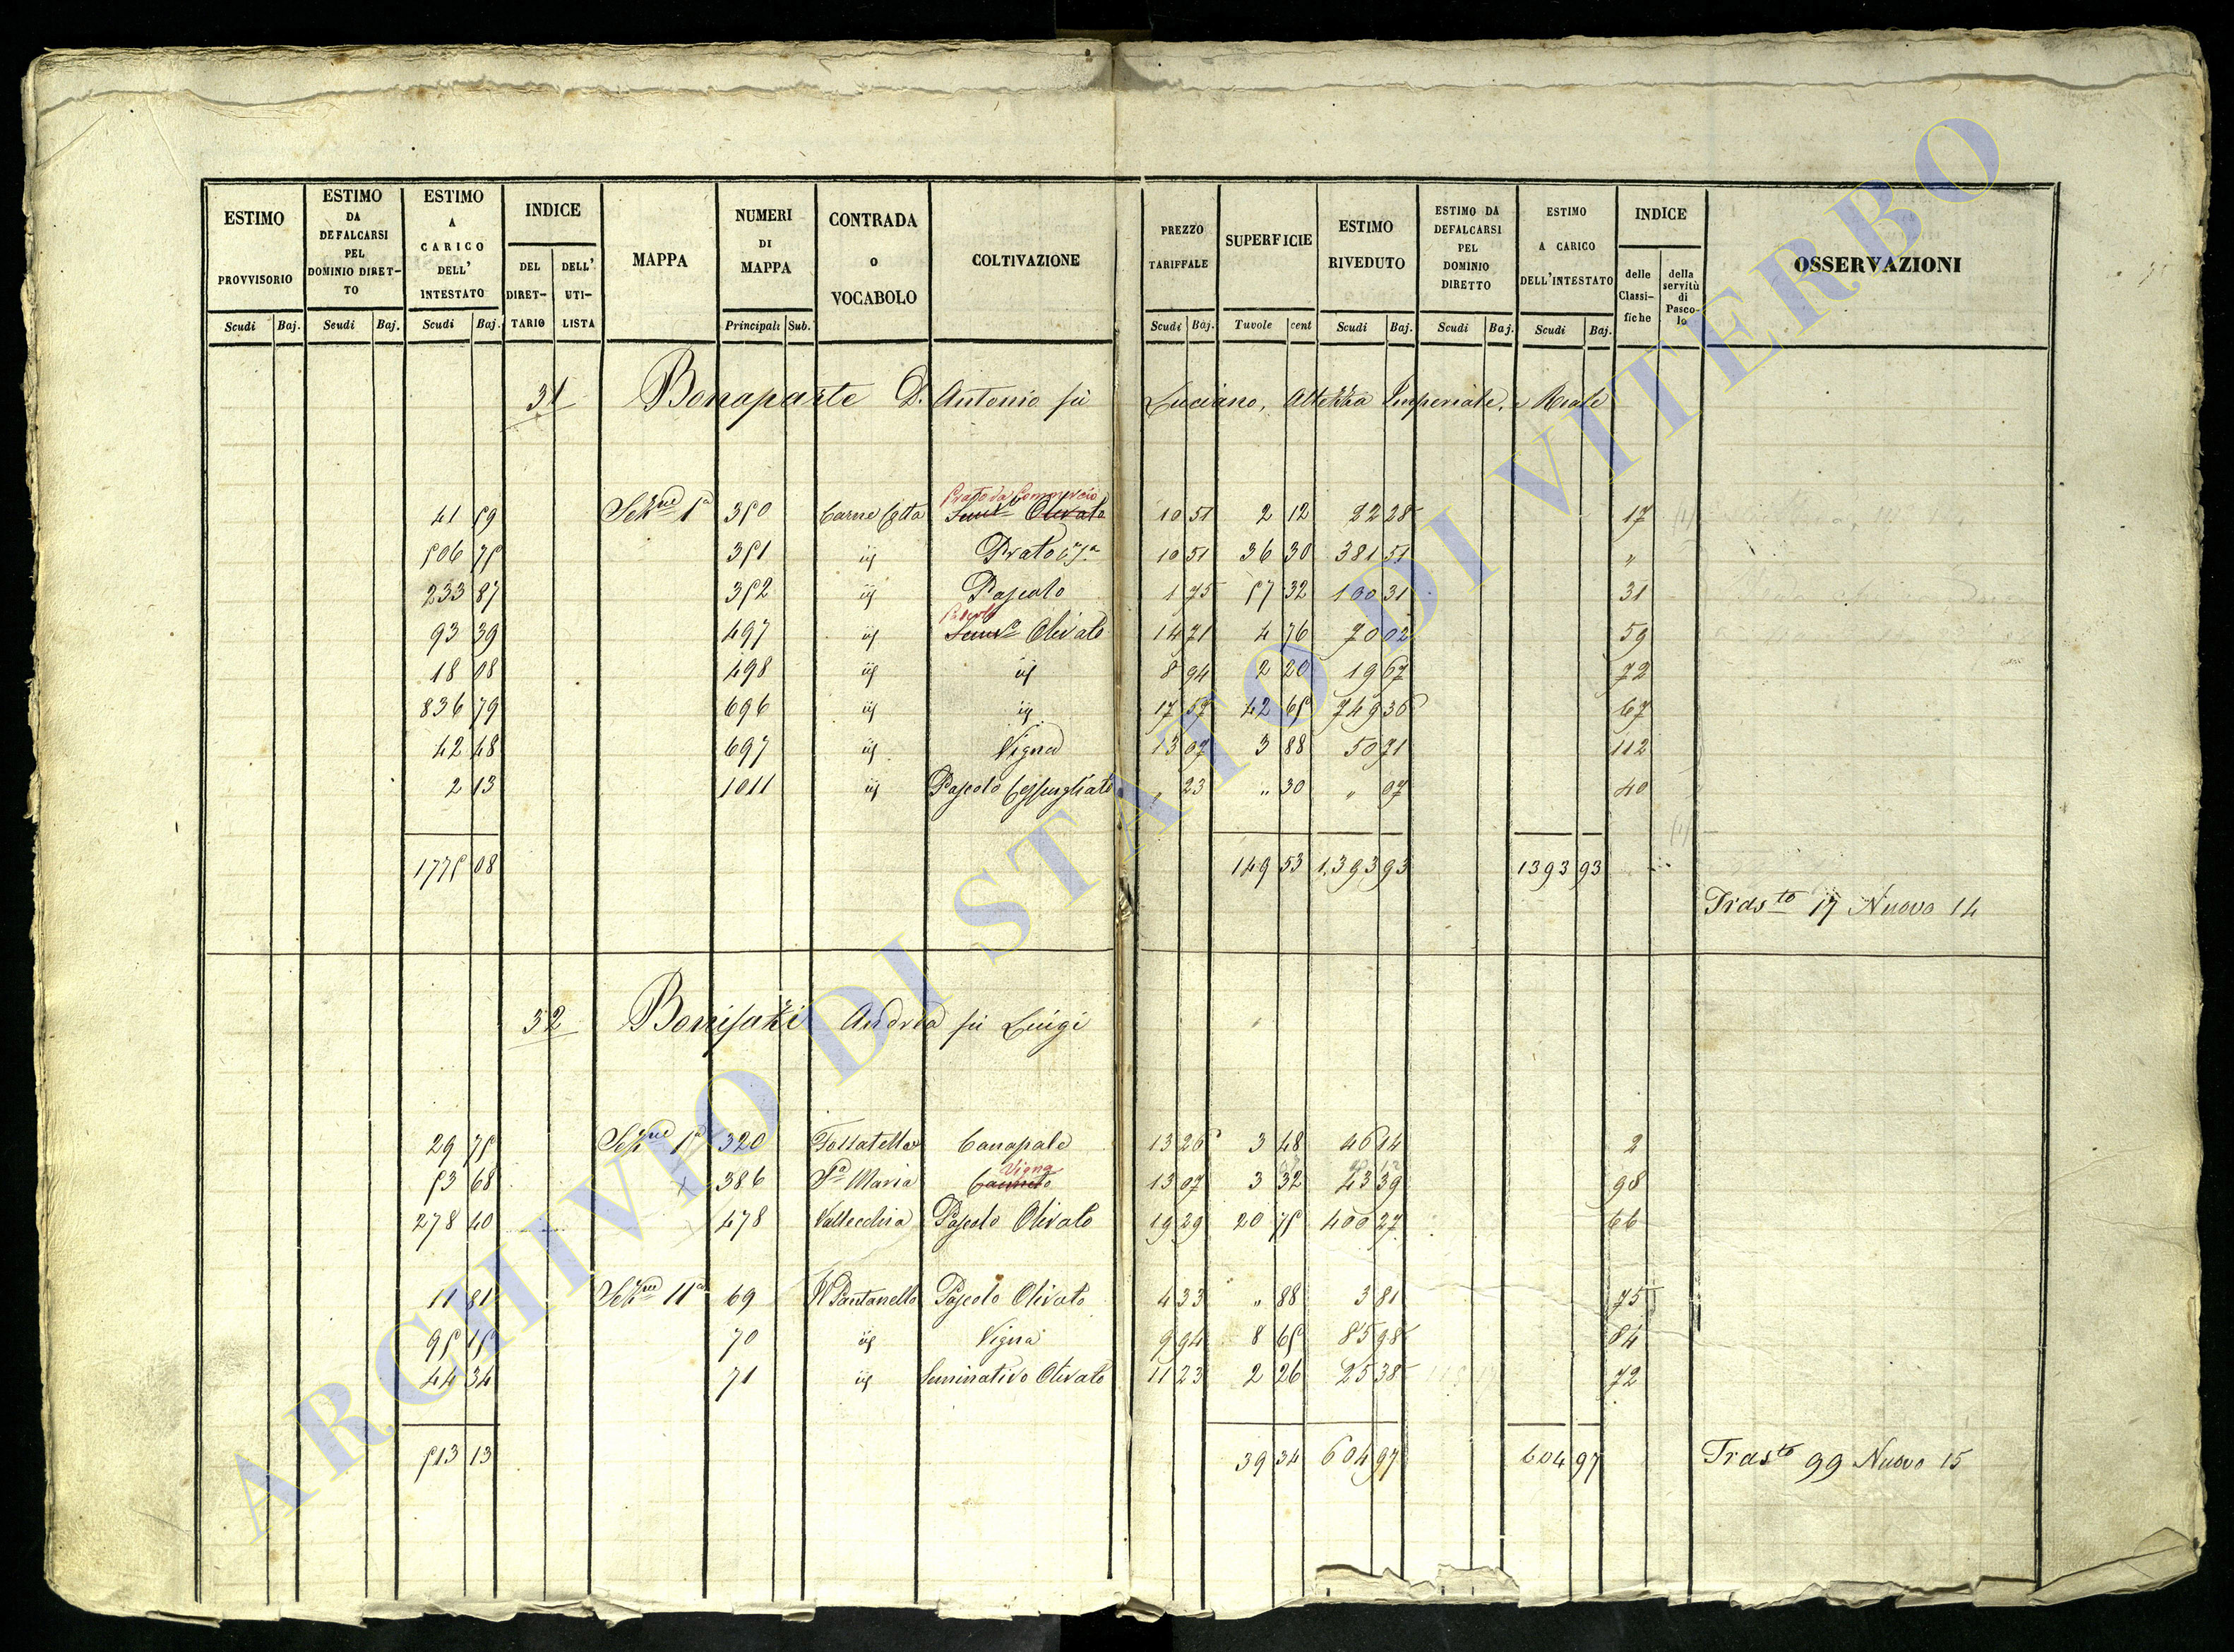 ESTIMO PROVVISORIO Scudi Baj.
ESTIMO DA DEFALCARSI PEL DOMINIO DIRET-TO Scudi Baj.
ESTIMO A CARICO DELL' INTESTATO Scudi Baj.
INDICE DEL DIRET-TARIO DELL' UTI-LISTA
MAPPA
NUMERI DI MAPPA Principali Sub.
CONTRADA o VOCABOLO
COLTIVAZIONE
PREZZO TARIFFALE Scudi Baj.
SUPERFICIE Tavole cent
ESTIMO RIVEDUTO Scudi Baj.
ESTIMO DA DEFALCARSI PEL DOMINIO DIRETTO Scudi Baj.
ESTIMO A CARICO DELL'INTESTATO Scudi Baj.
INDICE delle Classi-fiche della servitù di Pasco-lo
OSSERVAZIONI
31 Bonaparte D. Antonio fù Luciano, Altezza Imperiale, e Reale
Prato da Commercio
41 59 Sezne 1a 350 Carne Cotta Semvo Olivato 10 51 2 12 22 28 17
506 75 351 id Prato 10 51 36 30 381 51 "
233 87 352 id Pascolo 1 75 57 32 100 31 31
Pascolo
93 39 497 id Semvo Olivato 14 71 4 76 70 02 59
18 08 498 id id 8 94 2 20 19 67 72
836 79 696 id id 17 57 42 65 749 36 67
42 48 697 id Vigna 13 07 3 88 50 71 112
2 13 1011 id Pascolo Cespugliato " 23 " 30 " 07 40
1775 08 149 53 1393 93 1393 93
Trasto 17 Nuovo 14
32 Bonifazi Andrea fù Luigi
29 75 Sezne 1a 320 Fossatello Canapale 13 26 3 48 46 14 2
Vigna
53 68 386 Sa Maria Canneto 13 07 3 32 43 39 98
278 40 478 Vallecchia Pascolo Olivato 19 29 20 75 400 27 66
11 81 Sezne 11a 69 Il Pantanello Pascolo Olivato 4 33 " 88 3 81 75
95 15 70 id Vigna 9 94 8 65 85 98 84
44 34 71 id Seminativo Olivato 11 23 2 26 25 38 72
513 13 39 34 604 97 604 97 Trasto 99 Nuovo 15
ARCHIVIO DI STATO DI VITERBO